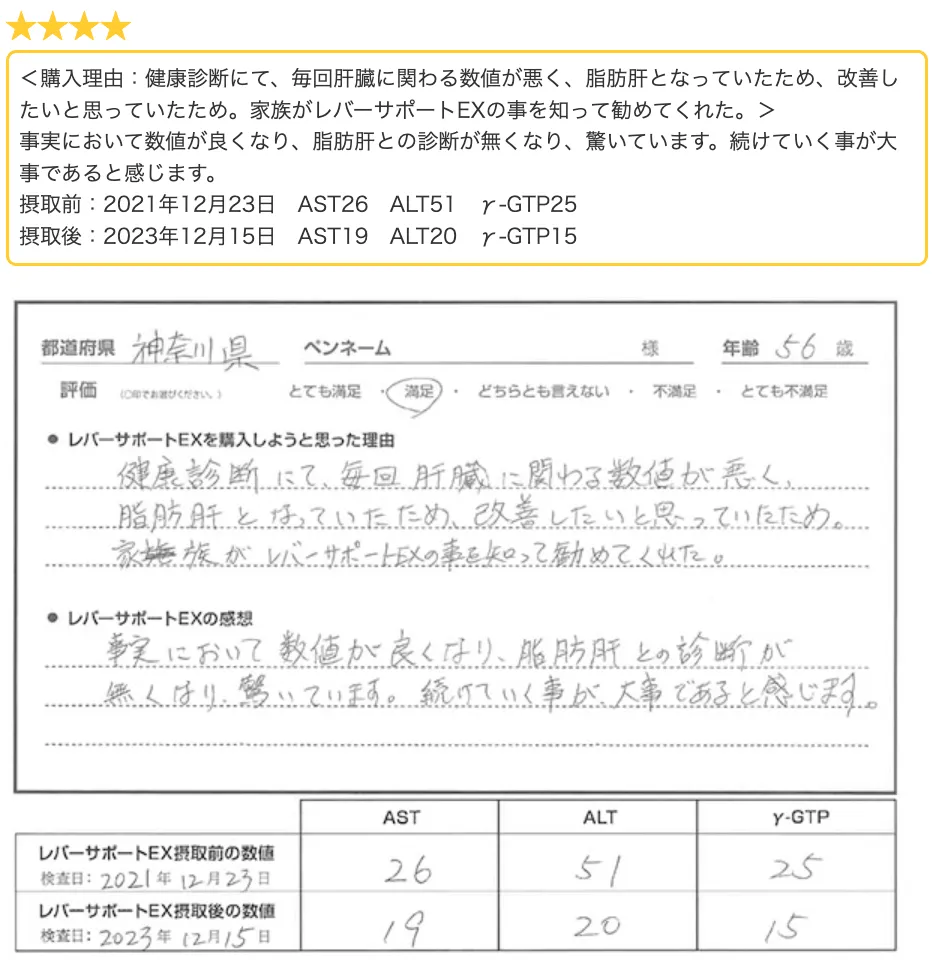 ★★★★
＜購入理由：健康診断にて、毎回肝臓に関わる数値が悪く、脂肪肝となっていたため、改善し
たいと思っていたため。家族がレバーサポートEXの事を知って勧めてくれた。＞
事実において数値が良くなり、脂肪肝との診断が無くなり、驚いています。続けていく事が大
事であると感じます。
摂取前：2021年12月23日　AST26　ALT51　γ-GTP25
摂取後：2023年12月15日　AST19　ALT20　γ-GTP15
都道府県 神奈川県 ペンネーム 様 年齢 56 歳
評価 (○印でお選びください。) とても満足 ・ 満足 ・ どちらとも言えない ・ 不満足 ・ とても不満足
● レバーサポートEXを購入しようと思った理由
健康診断にて、毎回肝臓に関わる数値が悪く、
脂肪肝となっていたため、改善したいと思っていたため。
家族がレバーサポートEXの事を知って勧めてくれた。
● レバーサポートEXの感想
事実において数値が良くなり、脂肪肝との診断が
無くなり、驚いています。続けていく事が、大事であると感じます。
AST ALT γ-GTP
レバーサポートEX摂取前の数値
検査日：2021年12月23日 26 51 25
レバーサポートEX摂取後の数値
検査日：2023年12月15日 19 20 15